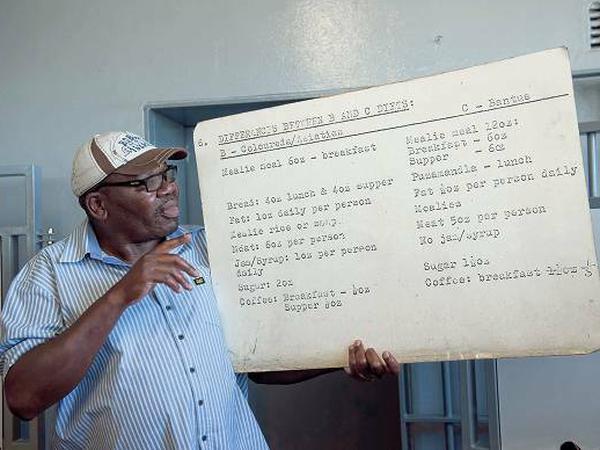 6. DIFFERENCES BETWEEN B AND C DIETS:
B - Coloureds/Asiatics
Mealie meal 6oz - breakfast
Bread: 4oz lunch & 4oz supper
Fat: 1oz daily per person
Mealie rice or samp.
Meat: 6oz per person
Jam/Syrup: 1oz per person
daily
Sugar: 2oz
Coffee: Breakfast - ½oz
Supper ½oz
C - Bantus
Mealie meal 12oz:
Breakfast - 6oz
Supper - 6oz
Puzamandla - lunch
Fat ½oz per person daily
Mealies
Meat 5oz per person
No jam/syrup
Sugar 1½oz
Coffee: breakfast